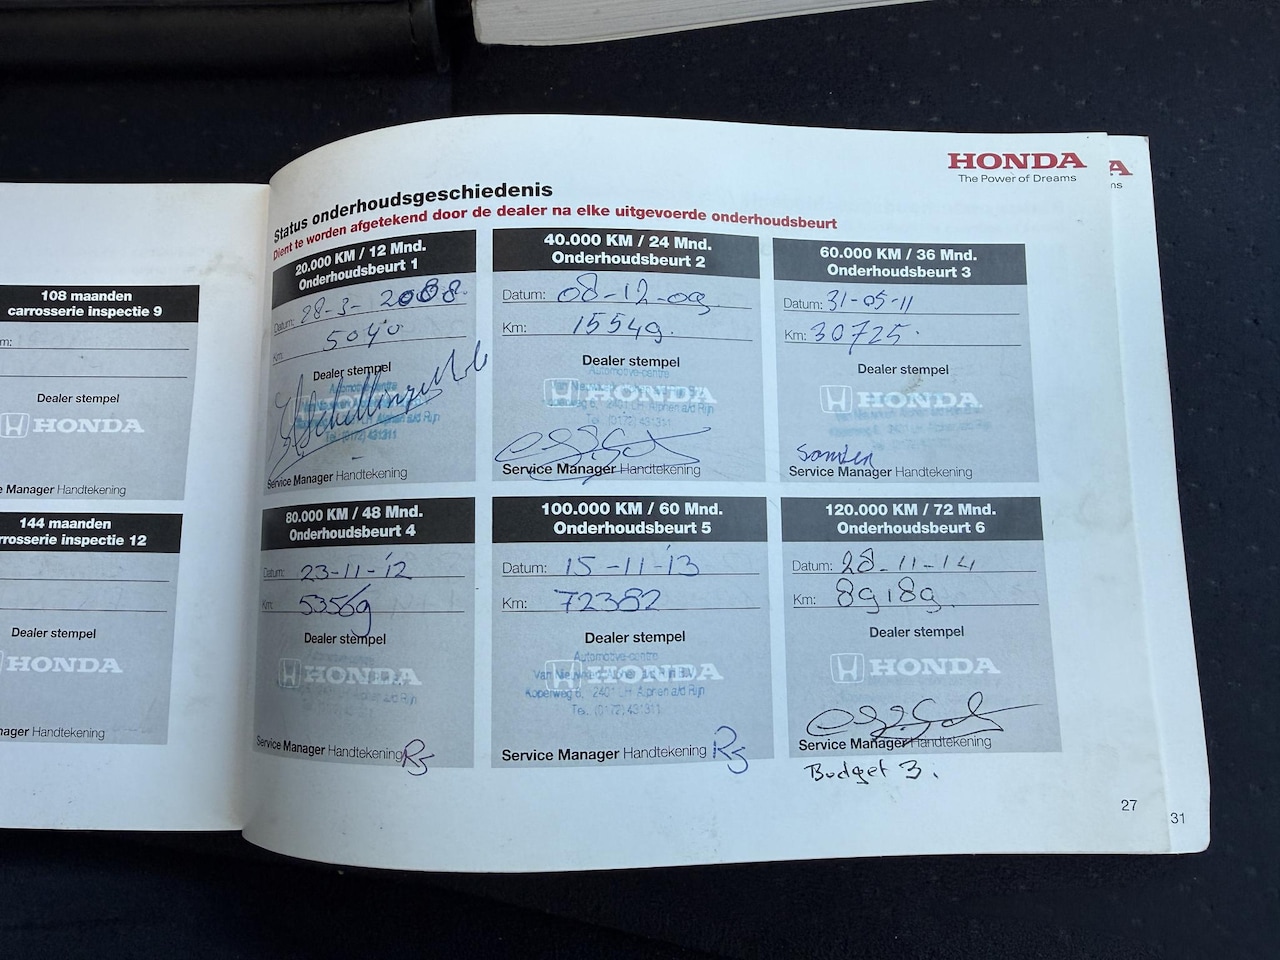 HONDA
The Power of Dreams
A
ns
Status onderhoudsgeschiedenis
Dient te worden afgetekend door de dealer na elke uitgevoerde onderhoudsbeurt
108 maanden
carrosserie inspectie 9
m:
Dealer stempel
HONDA
e Manager Handtekening
144 maanden
rrosserie inspectie 12
Dealer stempel
HONDA
nager Handtekening
20.000 KM / 12 Mnd.
Onderhoudsbeurt 1
Datum: 28-3-2008
Km: 5040
Dealer stempel
Automotive-centre
Tel. (0172) 431311
Service Manager Handtekening
40.000 KM / 24 Mnd.
Onderhoudsbeurt 2
Datum: 08-12-09
Km: 15549.
Dealer stempel
Automotive-centre
HONDA
Koperweg 6, 2401 LH Alphen a/d Rijn
Tel. (0172) 431311
Service Manager Handtekening
60.000 KM / 36 Mnd.
Onderhoudsbeurt 3
Datum: 31-05-11
Km: 30725.
Dealer stempel
HONDA
Service Manager Handtekening
80.000 KM / 48 Mnd.
Onderhoudsbeurt 4
Datum: 23-11-12
Km: 53569
Dealer stempel
HONDA
Service Manager Handtekening
100.000 KM / 60 Mnd.
Onderhoudsbeurt 5
Datum: 15-11-13
Km: 72382
Dealer stempel
Automotive-centre
HONDA
Koperweg 6, 2401 LH Alphen a/d Rijn
Tel. (0172) 431311
Service Manager Handtekening
120.000 KM / 72 Mnd.
Onderhoudsbeurt 6
Datum: 28-11-14
Km: 89189.
Dealer stempel
HONDA
Service Manager Handtekening
Budget 3.
27
31